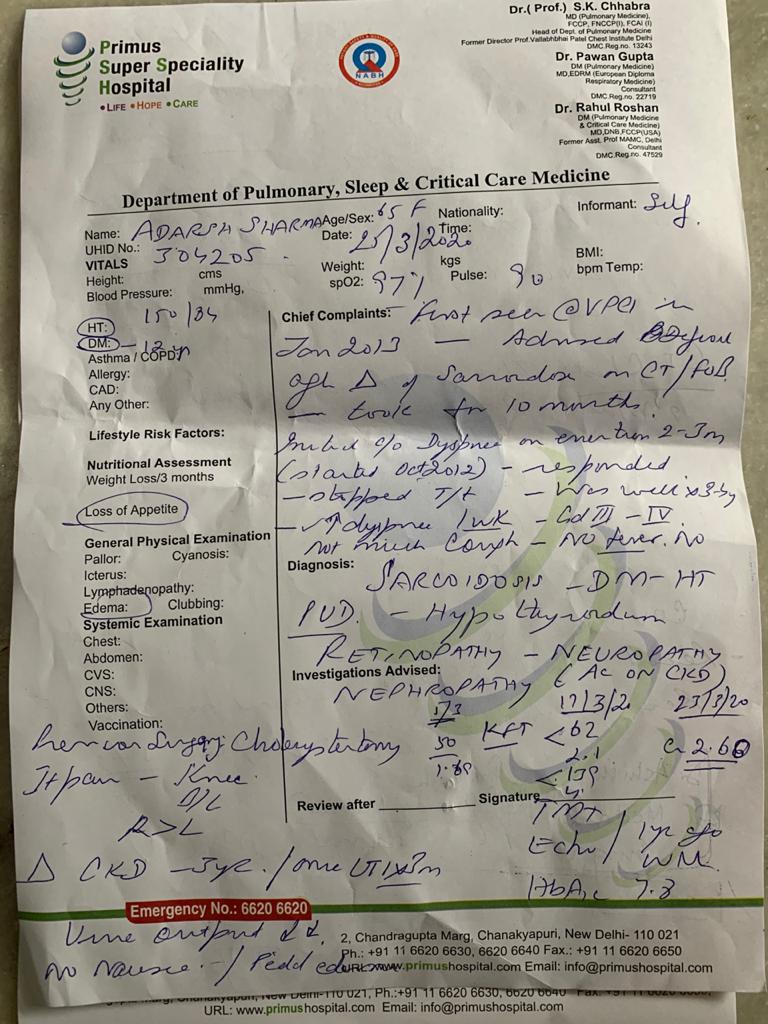 Primus
Super Speciality
Hospital
• LIFE • HOPE • CARE
NABH
Dr.( Prof.) S.K. Chhabra
MD (Pulmonary Medicine),
FCCP, FNCCP(I), FCAI (I)
Head of Dept. of Pulmonary Medicine
Former Director Prof.Vallabhbhai Patel Chest Institute Delhi
DMC.Reg.no. 13243
Dr. Pawan Gupta
DM (Pulmonary Medicine)
MD,EDRM (European Diploma
Respiratory Medicine)
Consultant
DMC.Reg.no. 22719
Dr. Rahul Roshan
DM (Pulmonary Medicine
& Critical Care Medicine)
MD,DNB,FCCP(USA)
Former Asst. Prof MAMC, Delhi
Consultant
DMC.Reg.no. 47529
Department of Pulmonary, Sleep & Critical Care Medicine
Name: ADARSH SHARMA Age/Sex: 65 F Nationality: Informant: Self
UHID No.: 304205 Date: 25/3/2020 Time:
VITALS
Height: cms Weight: kgs BMI:
Blood Pressure: mmHg, spO2: 97% Pulse: 90 bpm Temp:
150/84
HT:
DM: - 12 yr
Asthma / COPD:
Allergy:
CAD:
Any Other:
Lifestyle Risk Factors:
Nutritional Assessment
Weight Loss/3 months
Loss of Appetite
General Physical Examination
Pallor: Cyanosis:
Icterus:
Lymphadenopathy:
Edema: Clubbing:
Systemic Examination
Chest:
Abdomen:
CVS:
CNS:
Others:
Vaccination:
Chief Complaints: First seen @ VPCI in
Jan 2013 — Advised
Δ of Sarcoidosis on CT/FOB
— took for 10 months
Initial c/o Dyspnea on exertion 2-3m
(started Oct 2012) - responded
- stopped T/t - Was well
- ↑ dyspnea 1 wk - Gd III - IV
not much cough - No fever. No
Diagnosis:
SARCOIDOSIS - DM - HT
PUD. - Hypothyroidism
RETINOPATHY - NEUROPATHY
Investigations Advised:
NEPHROPATHY (Ac ON CKD)
17/3/20 23/3/20
50 KFT < 62
2.1 Cr 2.60
< 139
Previous Surgery: Cholecystectomy
Jt pain - Knee
B/L
R>L
Review after Signature
TMT
Echo / 1 yr ago
WNL
HbA1c 7.8
Δ CKD - 3yr. / one UTI x 3m
Emergency No.: 6620 6620
Urine output ↓↓.
No Nausea - / Pedal edema
2, Chandragupta Marg, Chanakyapuri, New Delhi- 110 021
Ph.: +91 11 6620 6630, 6620 6640 Fax.: +91 11 6620 6650
URL: www.primushospital.com Email: info@primushospital.com
Marg, Chanakyapuri, New Delhi-110 021, Ph.:+91 11 6620 6630, 6620 6640
URL: www.primushospital.com Email: info@primushospital.com